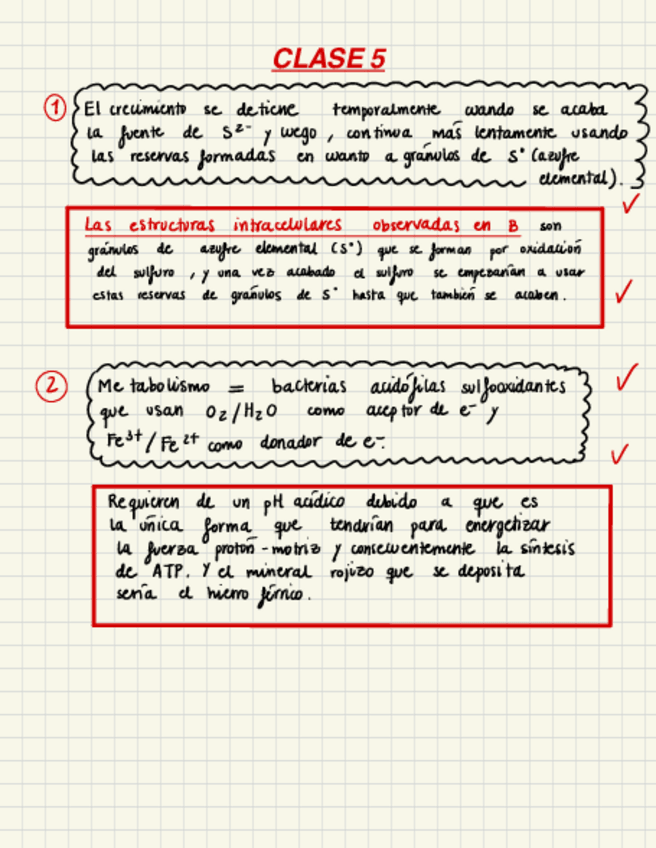 CLASE 5
1 El crecimiento se detiene temporalmente cuando se acaba
la fuente de S²⁻ y luego, continua más lentamente usando
las reservas formadas en cuanto a gránulos de S° (azufre
elemental).
Las estructuras intracelulares observadas en B son
gránulos de azufre elemental (S°) que se forman por oxidación
del sulfuro, y una vez acabado el sulfuro se empezarían a usar
estas reservas de gránulos de S° hasta que también se acaben.
2 Metabolismo = bacterias acidófilas sulfooxidantes
que usan O₂/H₂O como aceptor de e⁻ y
Fe³⁺/Fe²⁺ como donador de e⁻.
Requieren de un pH acídico debido a que es
la única forma que tendrían para energetizar
la fuerza protón-motriz y consecuentemente la síntesis
de ATP. Y el mineral rojizo que se deposita
sería el hierro férrico.